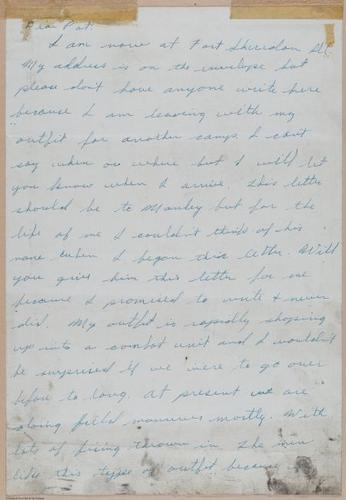 Dear Pat:
I am now at Fort Sheridan Ill
My address is on the envelope but
please don't have anyone write here
because I am leaving with my
outfit for another camp. I can't
say when or where but I will let
you know when I arrive. This letter
should be to Manley but for the
life of me I couldn't think of his
name when I began this letter. Will
you give him this letter for me
because I promised to write & never
did. My outfit is rapidly shaping
up into a combat unit and I wouldn't
be surprised if we were to go over
before to long. At present we are
doing field manuvers mostly. With
lots of firing thrown in. The men
like this type of outfit because